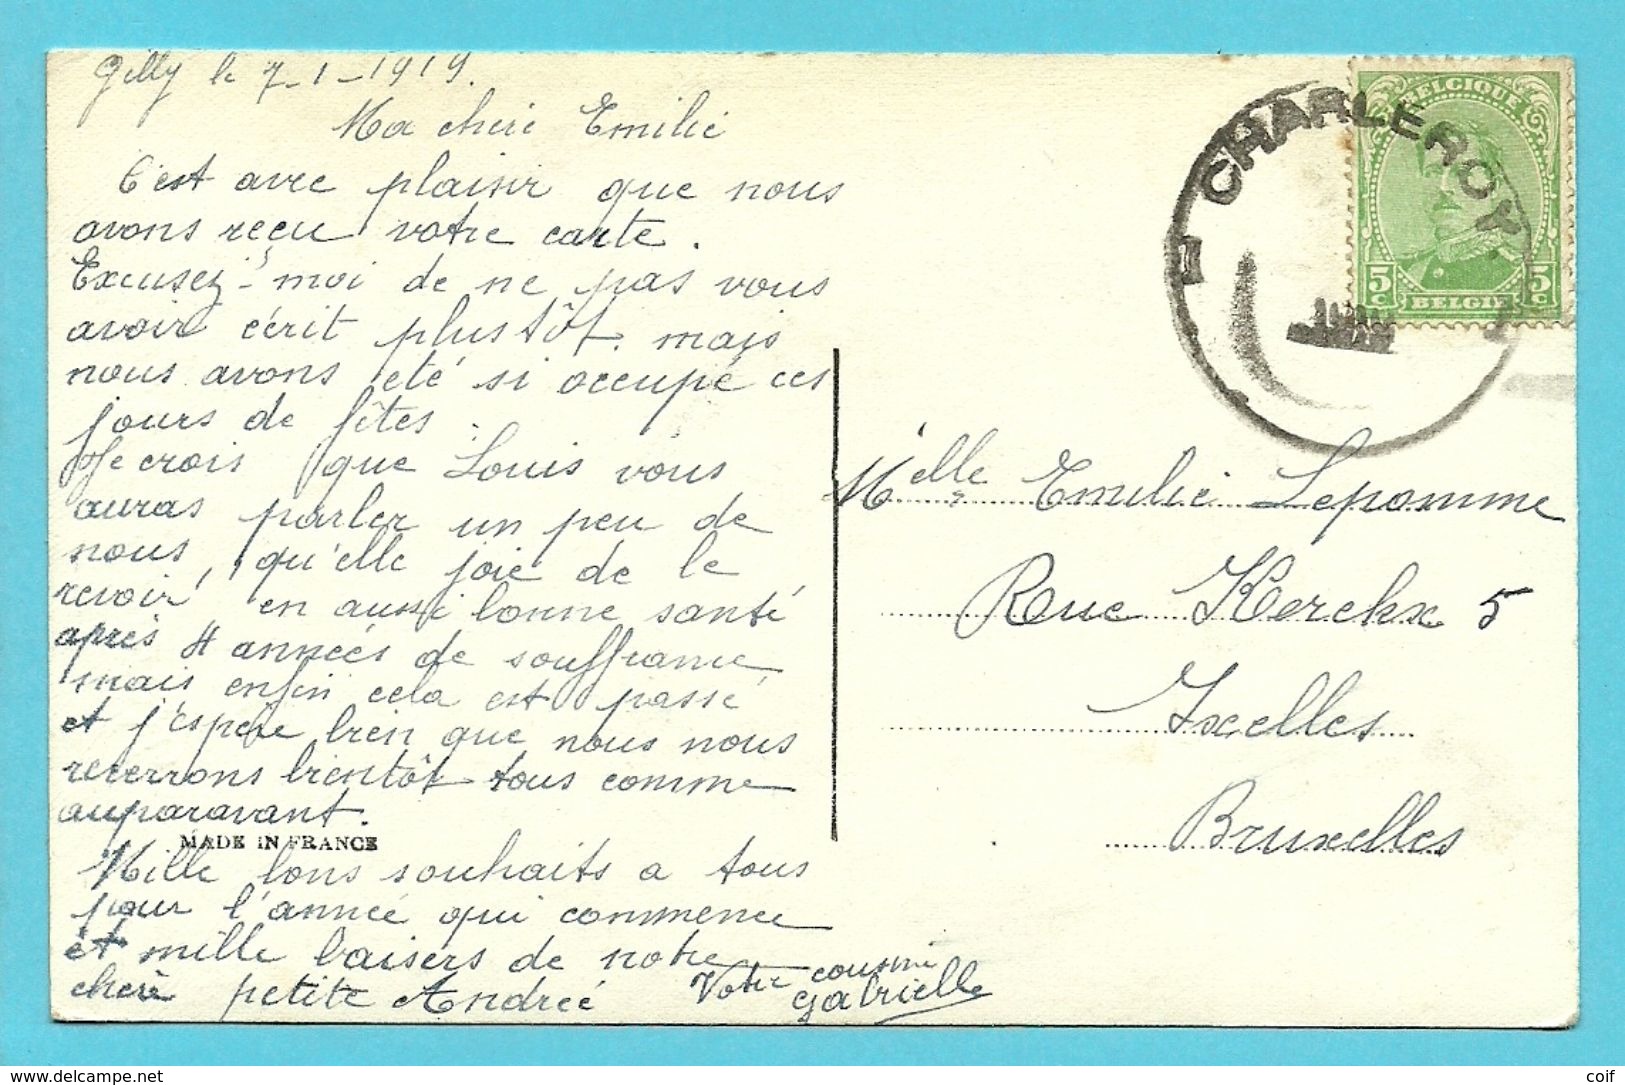 Gilly le 7-1-1919.
Ma chère Emilie
C'est avec plaisir que nous
avons reçu votre carte.
Excusez-moi de ne pas vous
avoir écrit plus tôt, mais
nous avons été si occupé ces
jours de fêtes.
Je crois que Louis vous
auras parler un peu de
nous, qu'elle joie de le
revoir, en aussi bonne santé
après 4 années de souffrance
mais enfin cela est passé
et j'espère bien que nous nous
reverrons bientôt tous comme
auparavant.
MADE IN FRANCE
Mille bons souhaits a tous
pour l'année qui commence
et mille baisers de notre
chère petite Andrée
Votre cousine
Gabrielle
CHARLEROY
1
BELGIQUE
5c 5c
BELGIE
Melle Emilie Lepomme
Rue Kerckx 5
Ixelles
Bruxelles
delcampe.net
coif